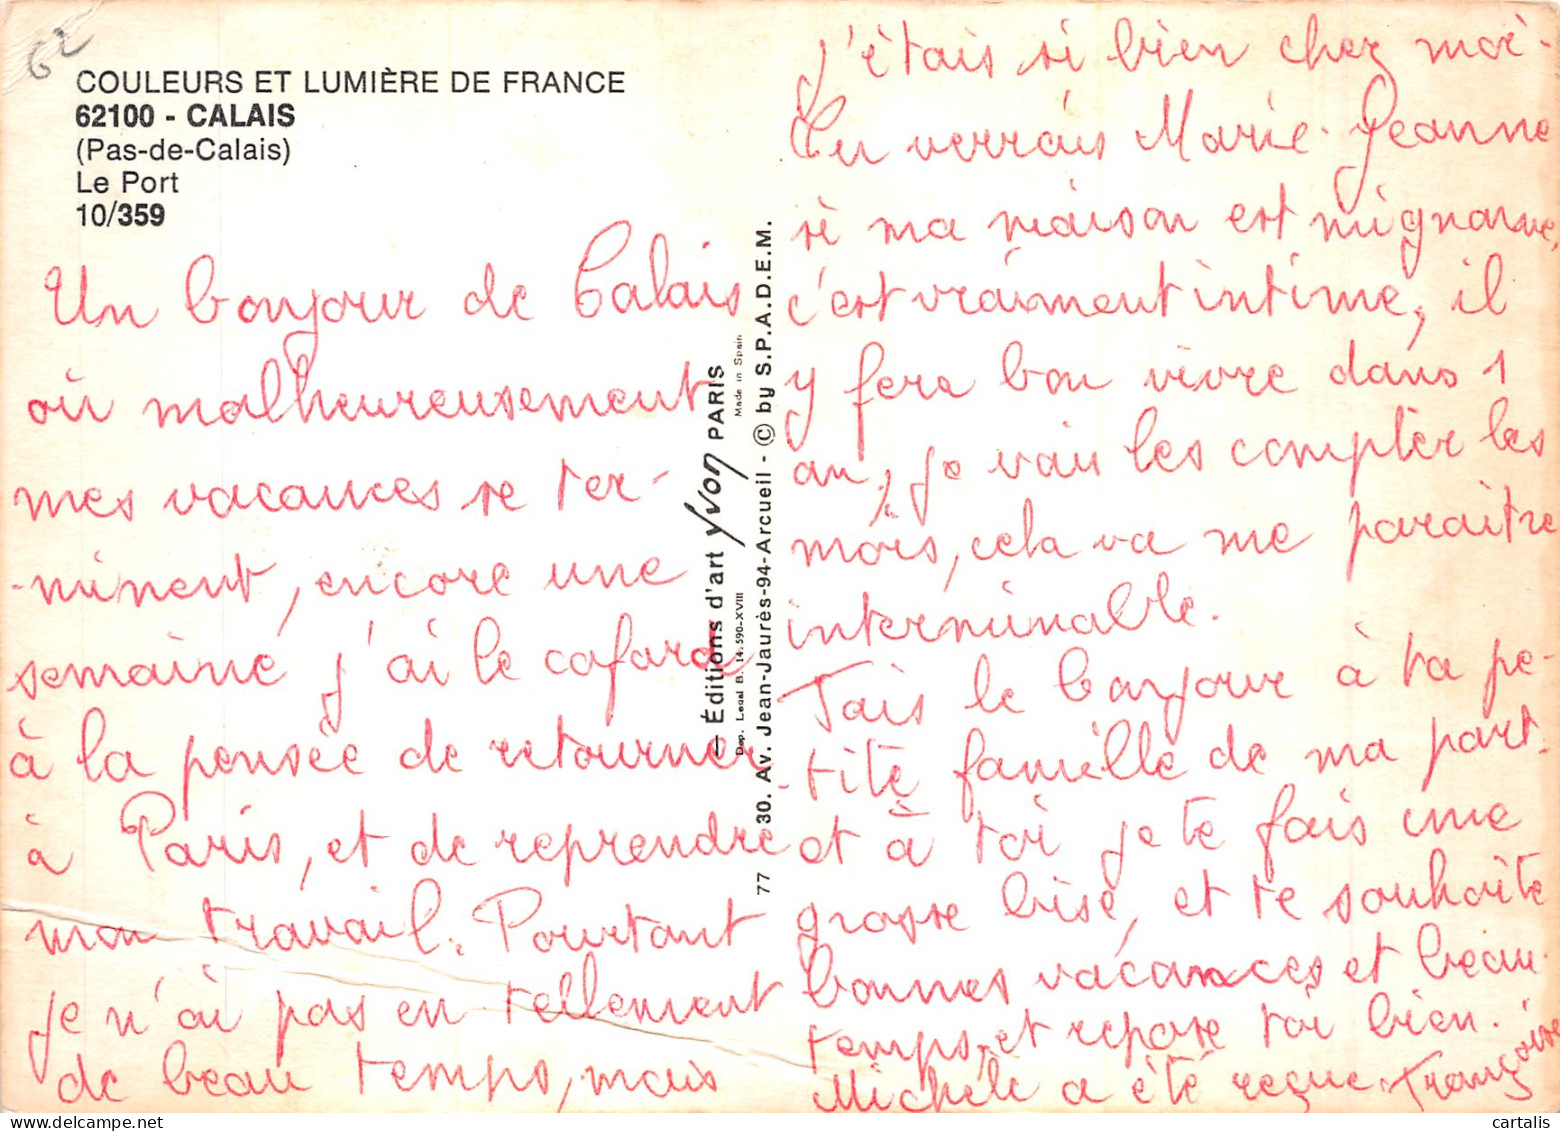 62
COULEURS ET LUMIÈRE DE FRANCE
62100 - CALAIS
(Pas-de-Calais)
Le Port
10/359
Un bonjour de Calais
où malheureusement
mes vacances se ter-
-minent, encore une
semaine j'ai le cafard
à la pensée de retourner
à Paris, et de reprendre
mon travail. Pourtant
je n'ai pas en tellement
de beau temps, mais
— Éditions d'art Yvon PARIS
Made in Spain
Dep. Legal B. 14.590-XVIII
77 30. Av. Jean-Jaurès-94-Arcueil - © by S.P.A.D.E.M.
j'étais si bien chez moi.
Tu verrais Marie-Jeanne
si ma maison est mignonne,
c'est vraiment intime, il
y fera bon vivre dans 1
an, je vais les compter les
mois, cela va me paraitre
interminable.
Fais le bonjour à ta pe-
-tite famille de ma part.
et à toi je te fais une
grosse bise, et te souhaite
bonnes vacances et beau
temps, et repose toi bien.
Michèle a été reçue. Françoise
www.delcampe.net
cartalis